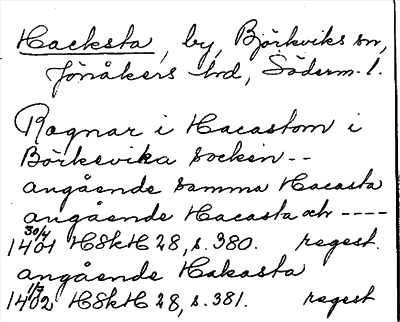 Hacksta, by, Björkviks sn,
Jönåkers hd, Söderm. l.
Ragnar i Hacastom i
Börkevika socken --
angående samma Hacasta
angående Hacasta och ----
30/4 1401 HSkH 28, s. 380. regest.
angående Hakasta
1/7 1402 HSkH 28, s. 381. regest